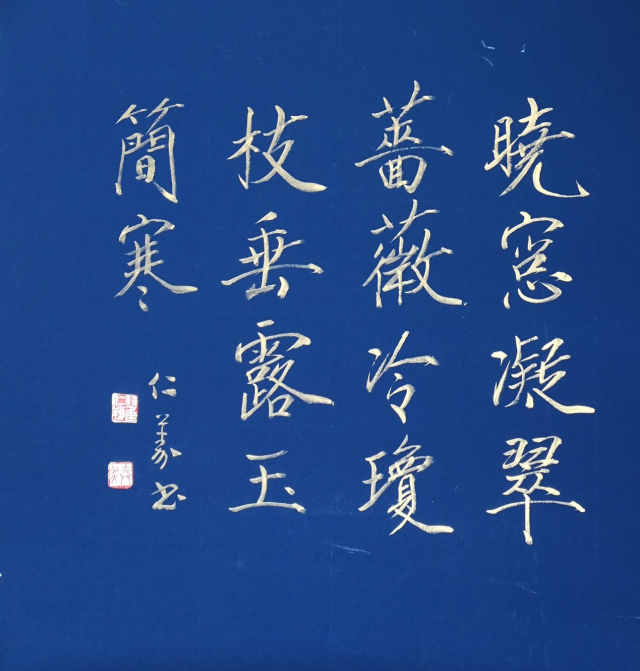 曉窓凝翠
薔薇冷瓊
枝垂露玉
簡寒
仁義书